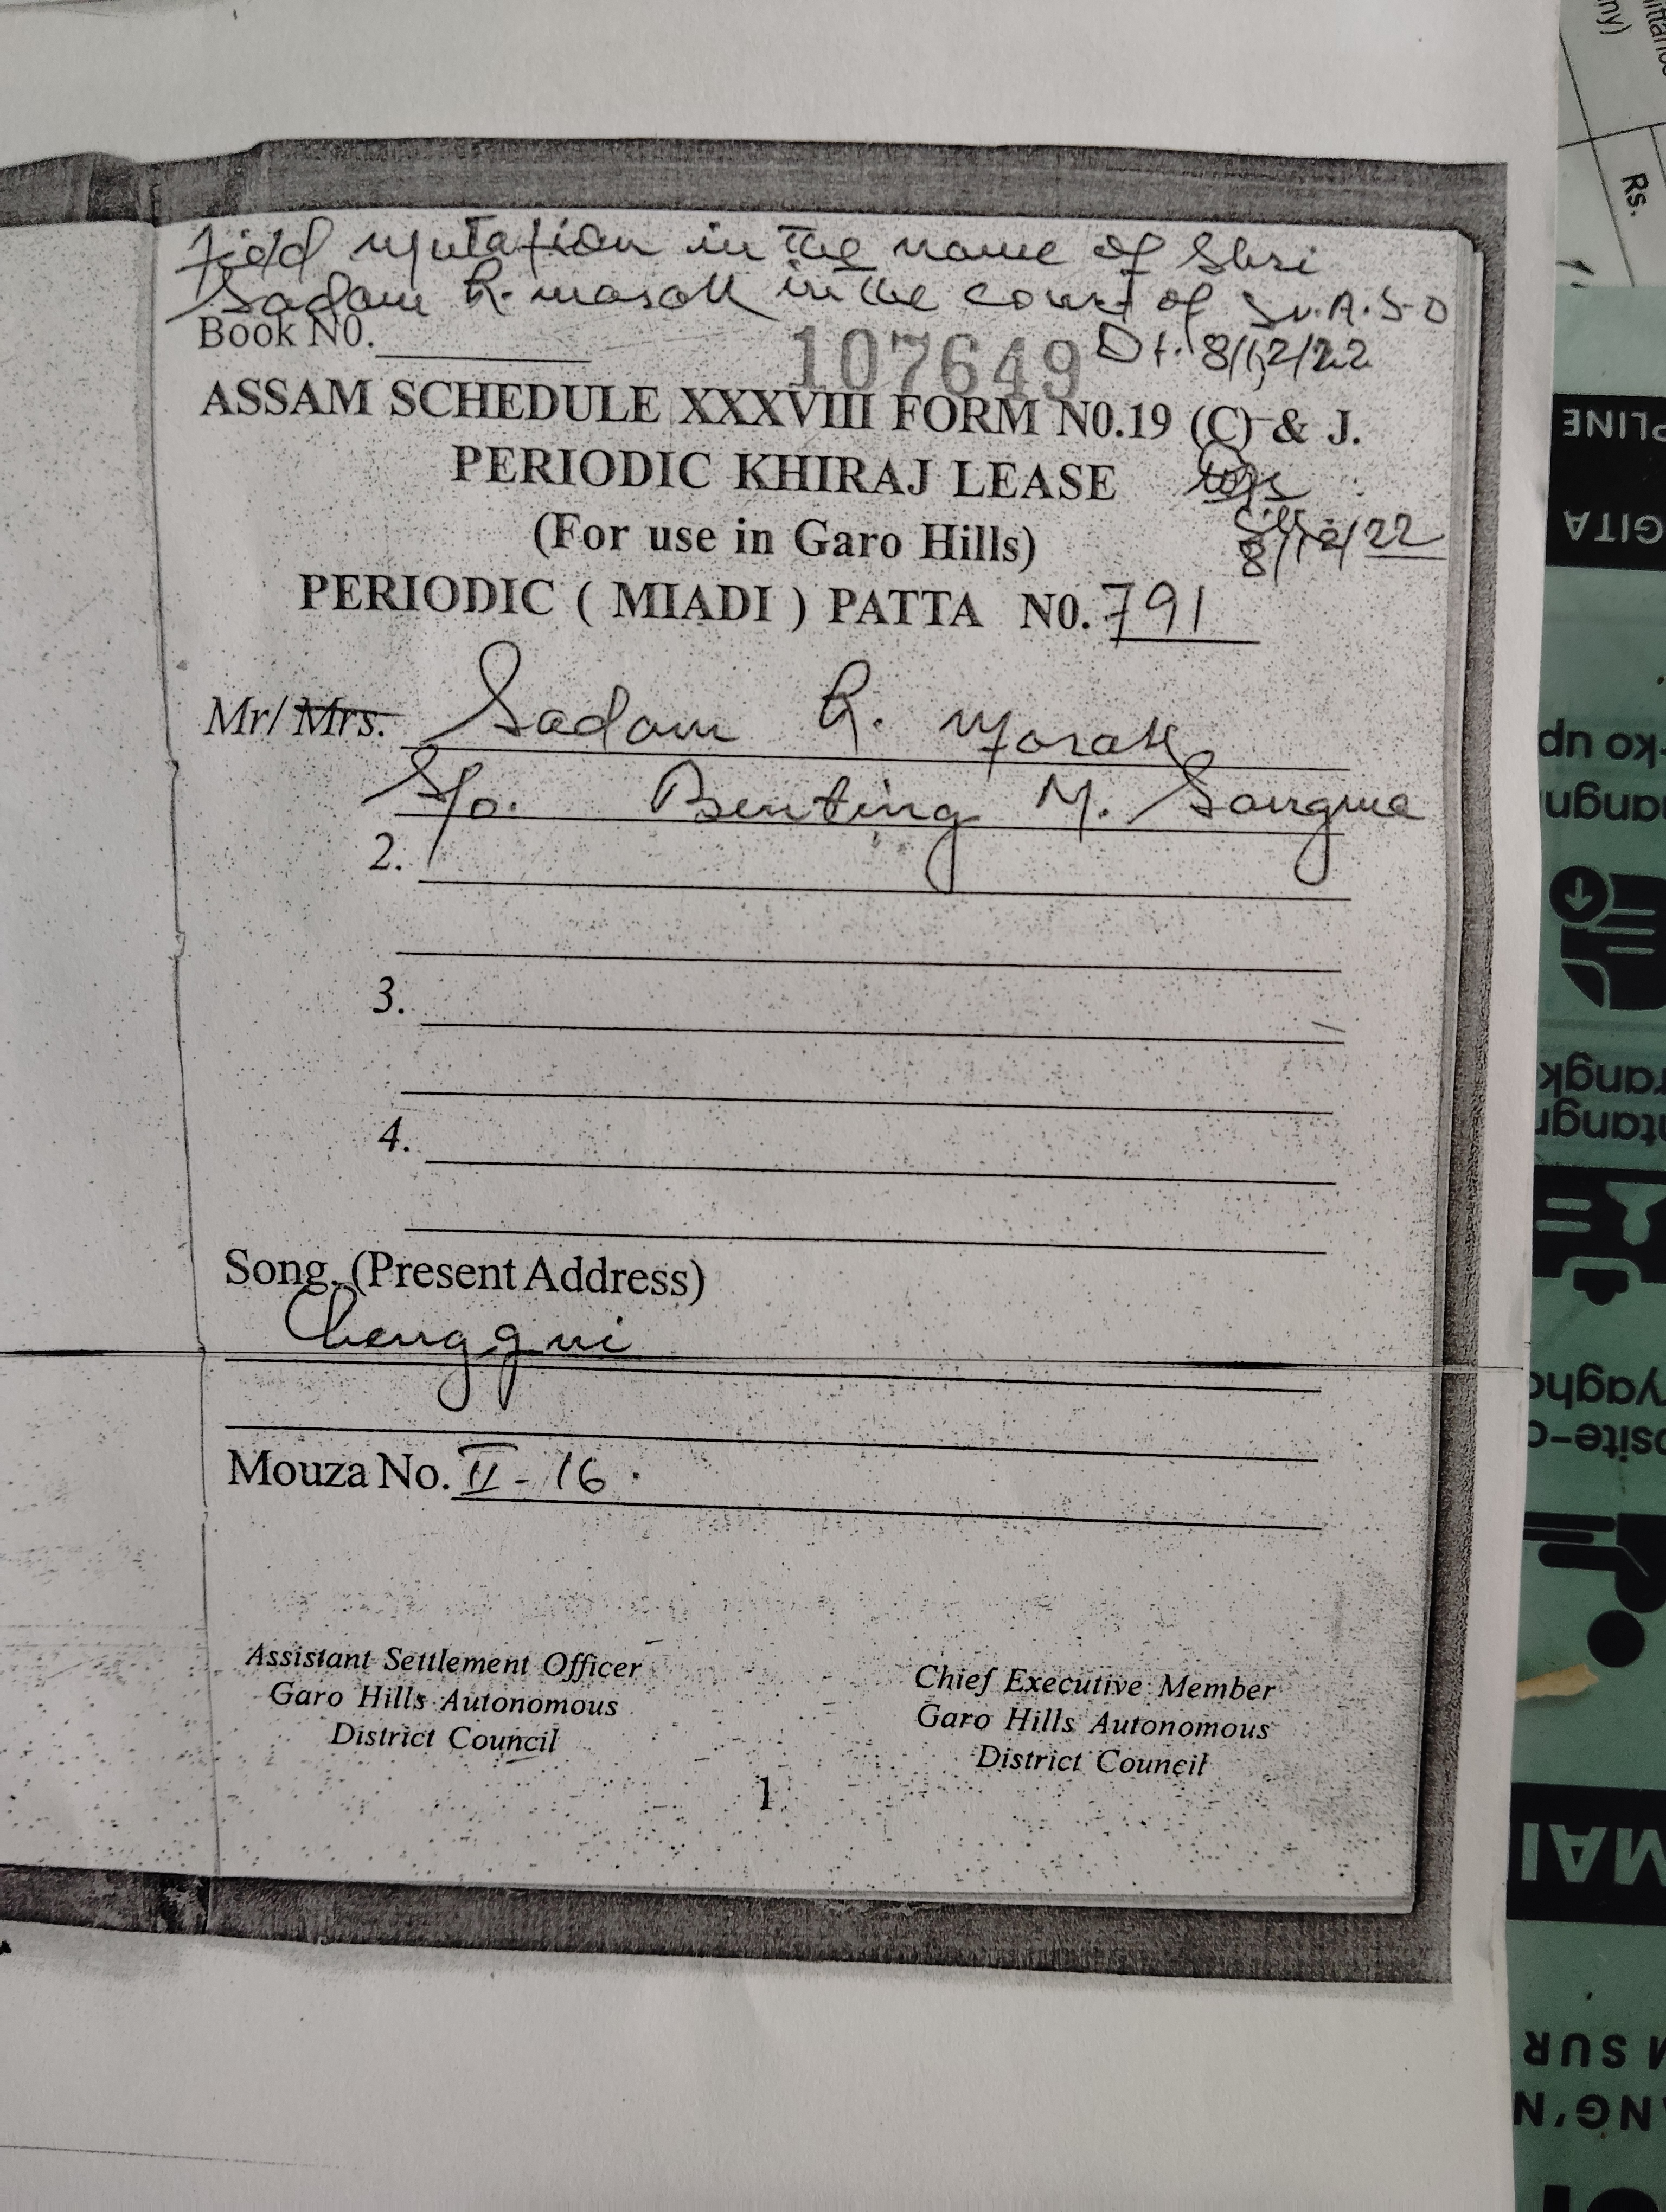 Field mutation in the name of Shri
Sadam R. marak in the court of Sr. A.S.O
Dt. 8/12/22
Book N0.
107649
ASSAM SCHEDULE XXXVIII FORM N0.19 (C) & J.
PERIODIC KHIRAJ LEASE
(For use in Garo Hills)
8/12/22
PERIODIC ( MIADI ) PATTA N0. 791
Mr/Mrs. Sadam R. Marak
S/o. Benting M. Sangma
2.
3.
4.
Song. (Present Address)
Chenggni
Mouza No. II - 16.
Assistant Settlement Officer
Garo Hills Autonomous
District Council
Chief Executive Member
Garo Hills Autonomous
District Council
1
Rs.
PLINE
GITA
-ko up
rangk
MAI
M SUR
ANG'N